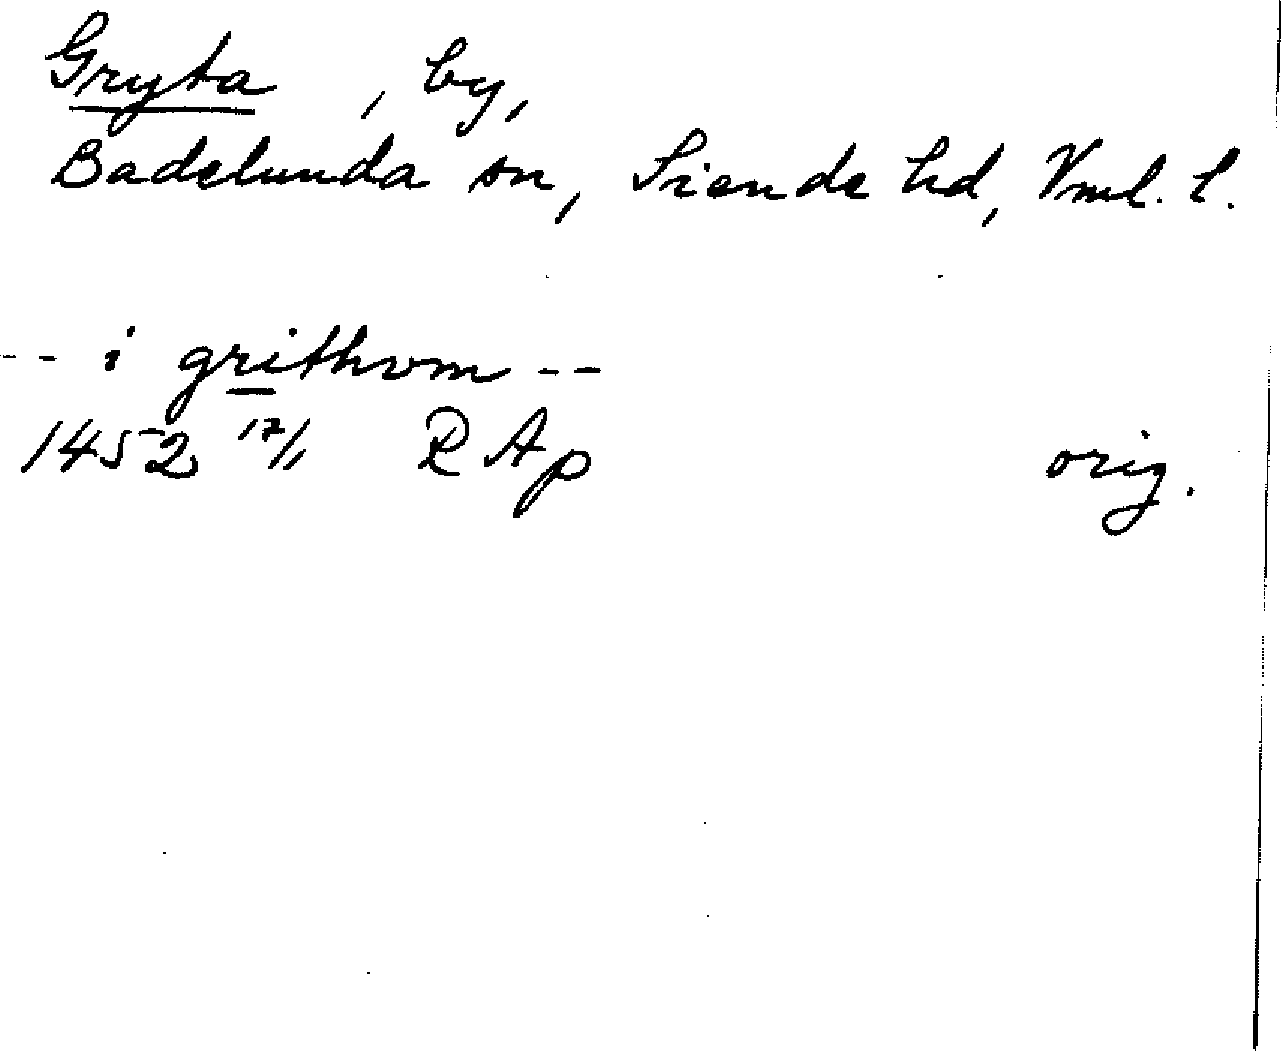 Gryta, by,
Badelunda sn, Siende hd, Vml. l.
-- i grithvm --
1452 17/1 RAp orig.